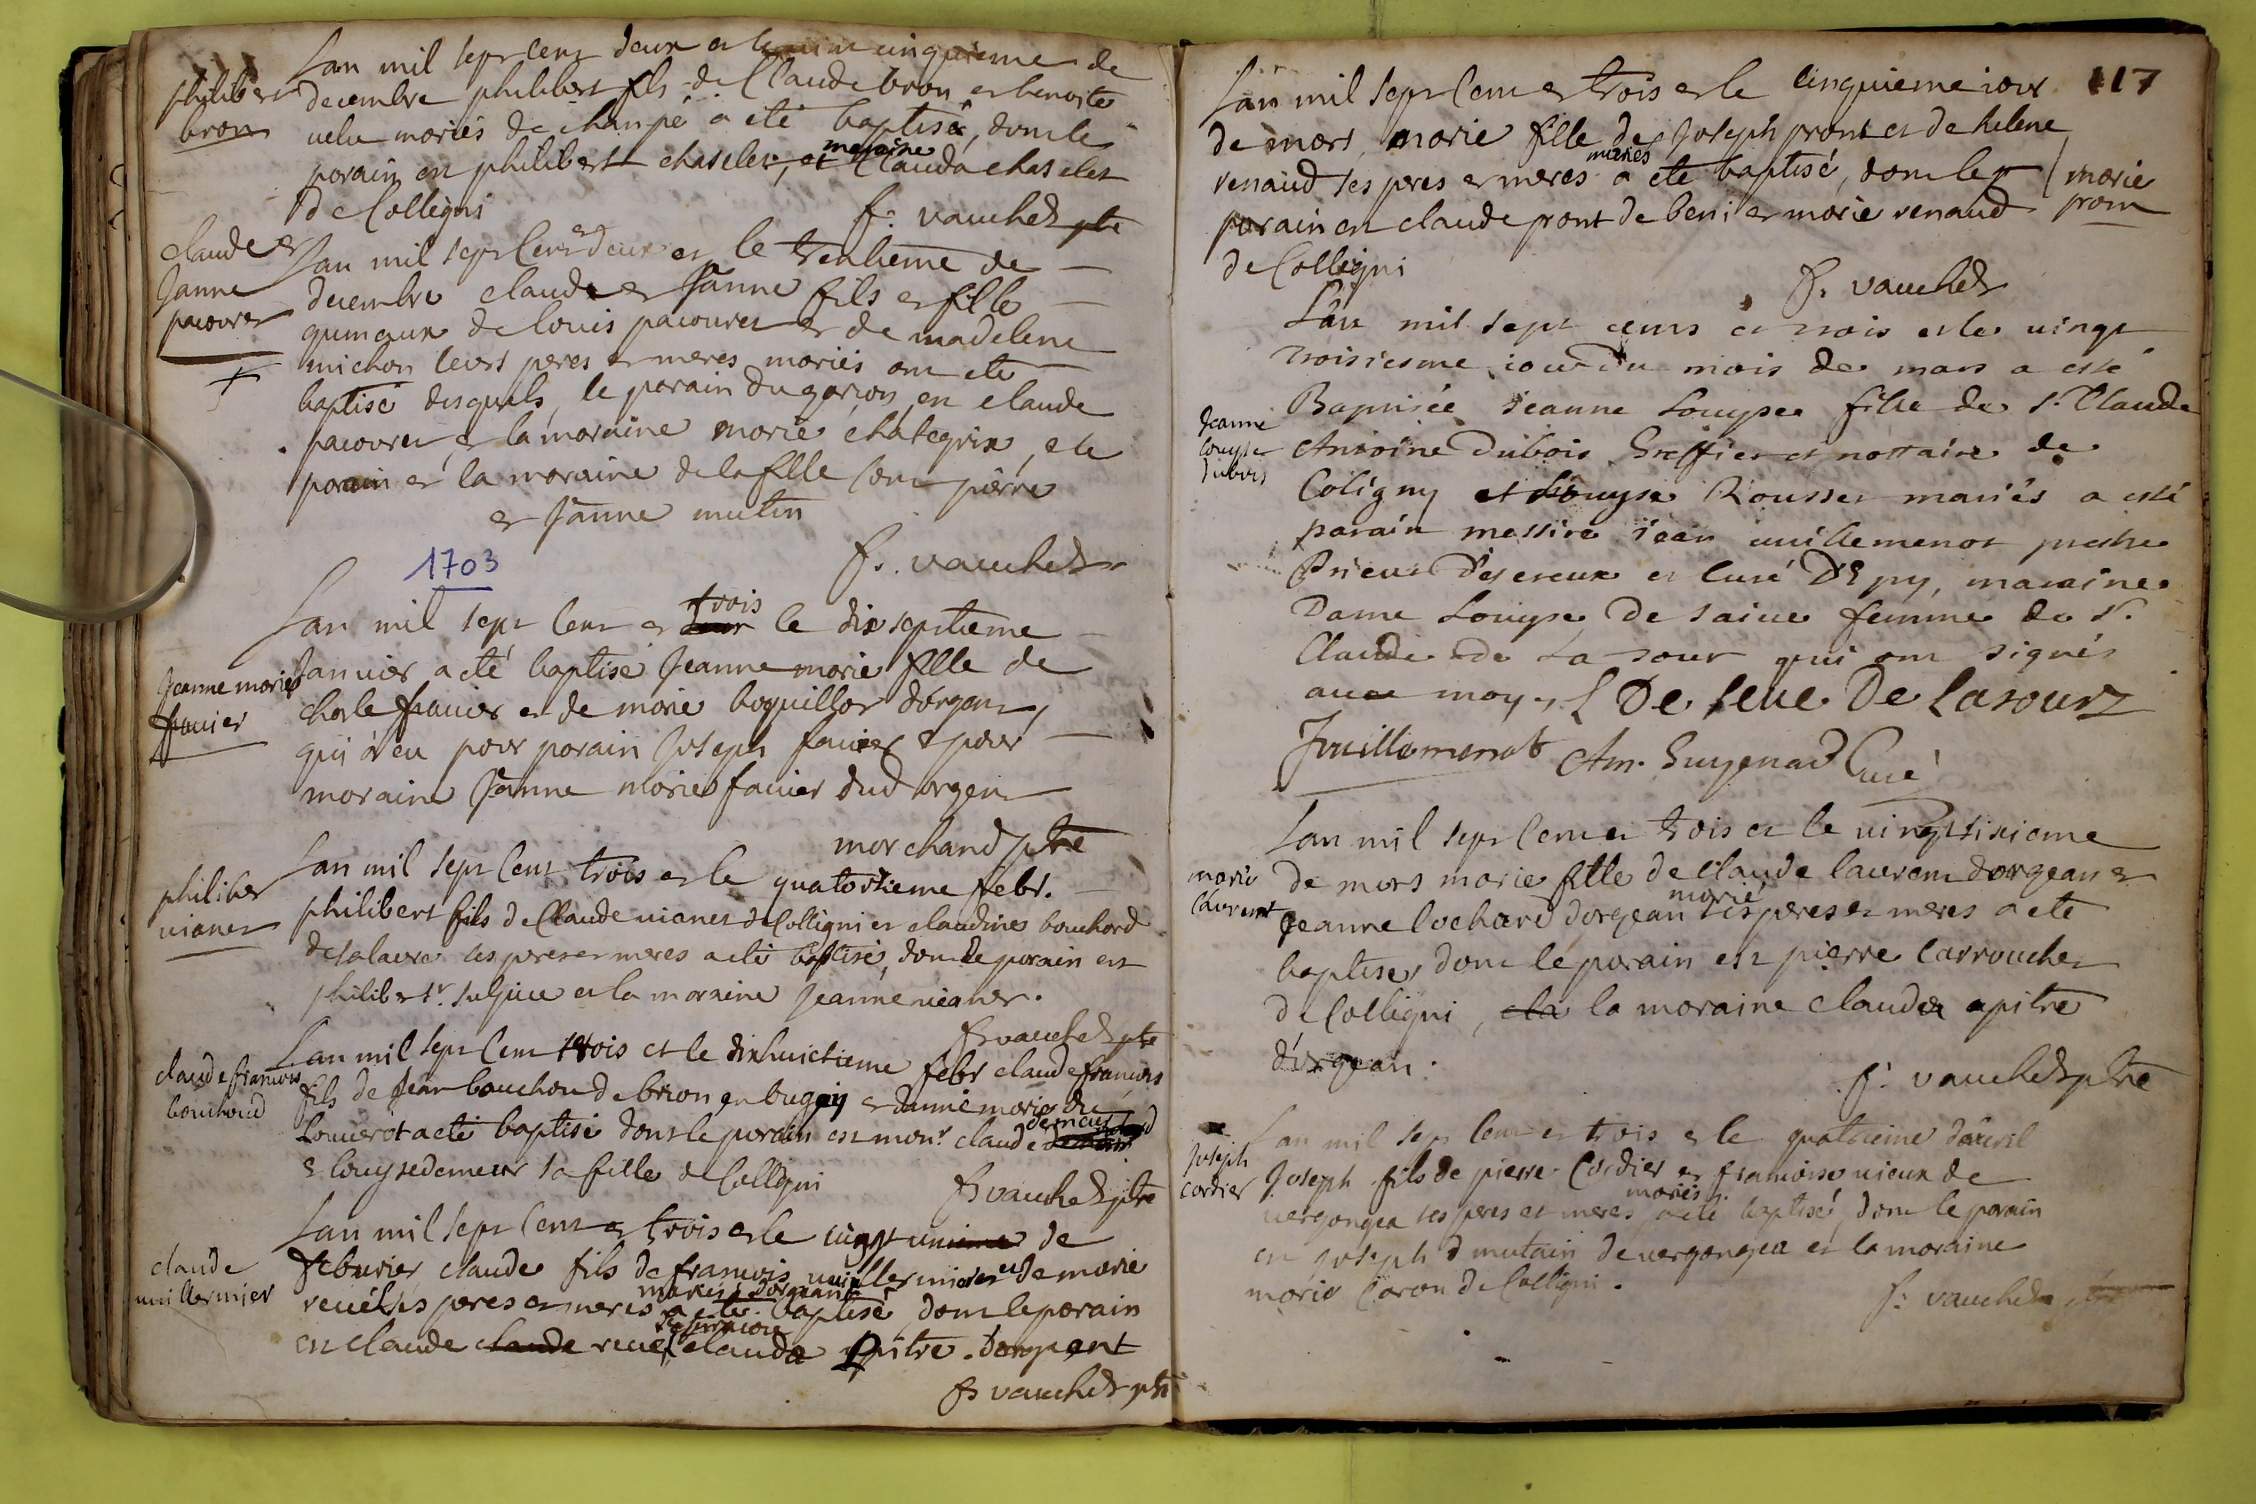 philibert
bron
Lan mil sept cent deux et le vint cinquieme de
decembre philibert fils de Claude bron et benoite
velu mariés de champé a été baptisé, dont le
parain est philibert chaselet, et maraine Clauda chaselet
de Colligni
f: vauchet ptre
claude et
Janne
pacouret
Lan mil sept cent et deux et le trentieme de
decembre claude et Janne fils et fille
gumeaux de louis pacouret et de madelene
michon leurs peres et meres mariés ont eté
baptisé desquels, le parain du garçon, est claude
pacouret, et la maraine marie chategrix, et le
parain et la maraine de la fille sont pierre
et Janne mutin
f. vauchet
1703
Jeanne marie
favier
Lan mil sept cent et trois le dix septieme
Janvier a eté baptisé Jeanne marie fille de
charle favier et de marie boquillor dorgent,
qui a eu pour parain Joseph favier & pour
maraine Janne marie favier dud orgent
marchand ptre
philibert
vianet
Lan mil sept cent trois et le quatorzieme febr.
philibert fils de Claude vianet de Colligni et claudine bouchard
ses peres et meres a eté baptisé, dont le parain est
philibert Sulpice et la maraine Jeanne vianet.
f: vauchet ptre
claude francois
bouchoud
Lan mil sept cent trois et le dixhuictieme febr claude francois
fils de Jean bouchou de brion en bugey et danne marie du
Louverot a eté baptisé dont le parain est monr. claude demeur
& louyse demeur sa fille de Colligni
f: vauchet ptre
claude
vuillermier
Lan mil sept cent et trois et le vingt unieme de
feburier claude fils de francois vuillermier et de marie
revel ses peres et meres mariés dorgeant a eté baptisé, dont le parain
est claude claude revel la maraine clauda Pitre dorgent
f: vauchet ptre
117
Lan mil sept Cent et trois et le cinquieme iour
de mars, marie fille de Joseph pront et de helene
renaud ses peres et meres mariés a eté baptisé, dont le
parain est claude pront de beni et marie renaud
de Colligni
marie
pront
f: vauchet
Jeanne
louyse
dubois
Lan mil sept cens et trois et le vingt
troisiesme iour du mois de mars a esté
Baptisée ieanne Louyse fille de sr. Claude
Antoine Dubois Greffier et nottaire de
Coligny et Louyse Rousset mariés a esté
parain messire iean vuillemenot prestre
Prieur et Curé D'Epy, maraine
Dame Louyse De saive femme du sr.
Claude de La tour qui ont signés
avec moy, L De seve De Latour
Jvuillemenot Am. Guygnard Curé
marie
laurent
Lan mil sept Cent et trois et le vingtsixieme
de mars marie fille de Claude laurent dorgean et
Jeanne lochard dorgean marié ses peres et meres a eté
baptisé, dont le parain est pierre Carrouchet
de Colligni, et la la maraine clauda apitre
d'orgean.
f: vauchet ptre
Joseph
cordier
Lan mil sept cent et trois et le quatrieme davril
Joseph fils de pierre Cordier et francoise vieux de
vergongea ses peres et meres mariés a eté baptisé, dont le parain
est joseph dmutain de vergongea et la maraine
marie Caron de Colligni.
f: vauchet ptre